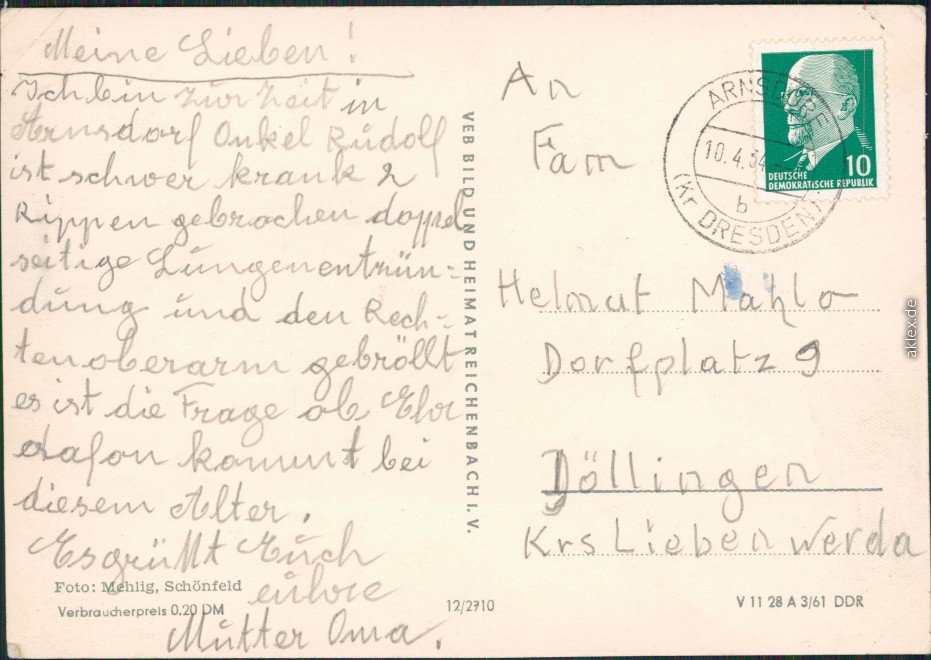 Meine Lieben!
Ich bin zur Zeit in
Arnsdorf Onkel Rudolf
ist schwer krank 2
Rippen gebrochen doppel
seitige Lungenentrün=
dung und den Rech=
tenoberarm gebröllt
es ist die Frage ob Ehr
dafon kommt bei
diesem Alter.
Esgrüßt Euch
eure
Mutter Oma.
Foto: Mehlig, Schönfeld
Verbraucherpreis 0,20 DM
VEB BILD UND HEIMAT REICHENBACH I. V.
12/2710
An
Fam
Helmut Mahlo
Dorfplatz 9
Döllingen
Krs Liebenwerda
ARNSDORF
10.4.64
b
(Kr DRESDEN)
10
DEUTSCHE
DEMOKRATISCHE REPUBLIK
V 11 28 A 3/61 DDR
aklex.de